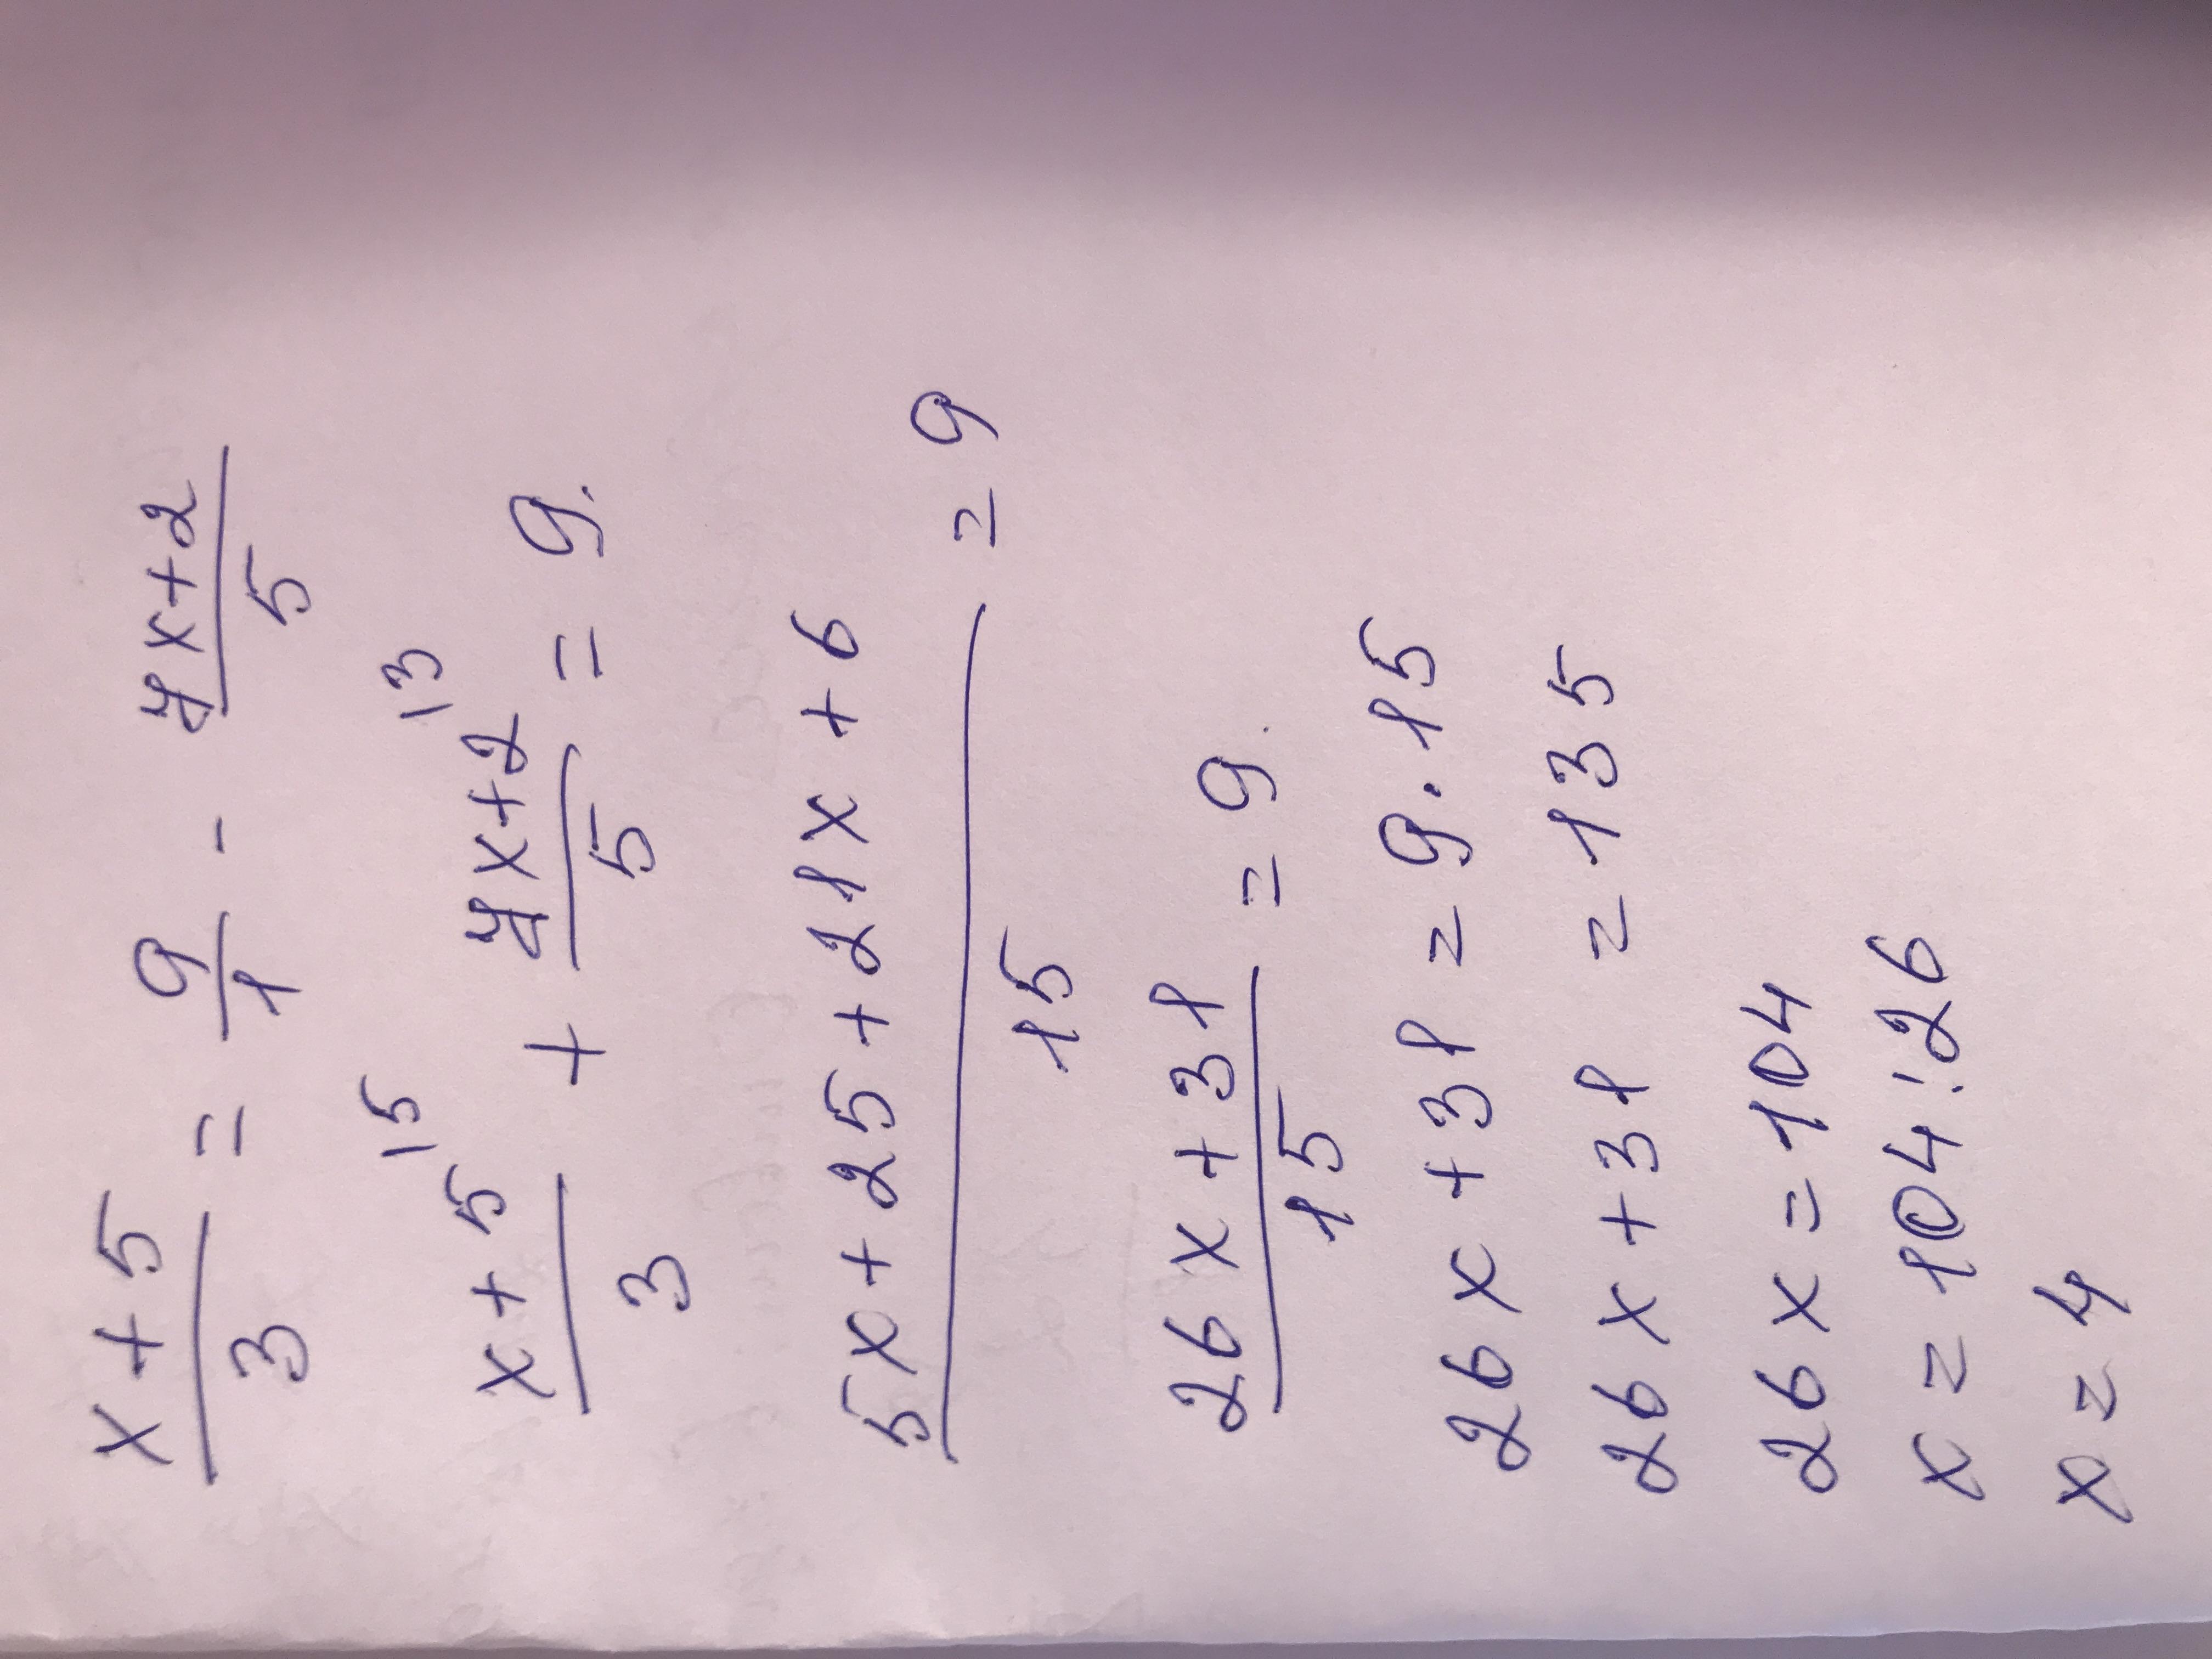 x+5/3 = 9/1 - 7x+2/5
x+5/3 |5 + 7x+2/5 |3 = 9.
5x+25+21x+6/15 = 9
26x+31/15 = 9.
26x+31 = 9·15
26x+31 = 135
26x=104
x=104:26
x=4